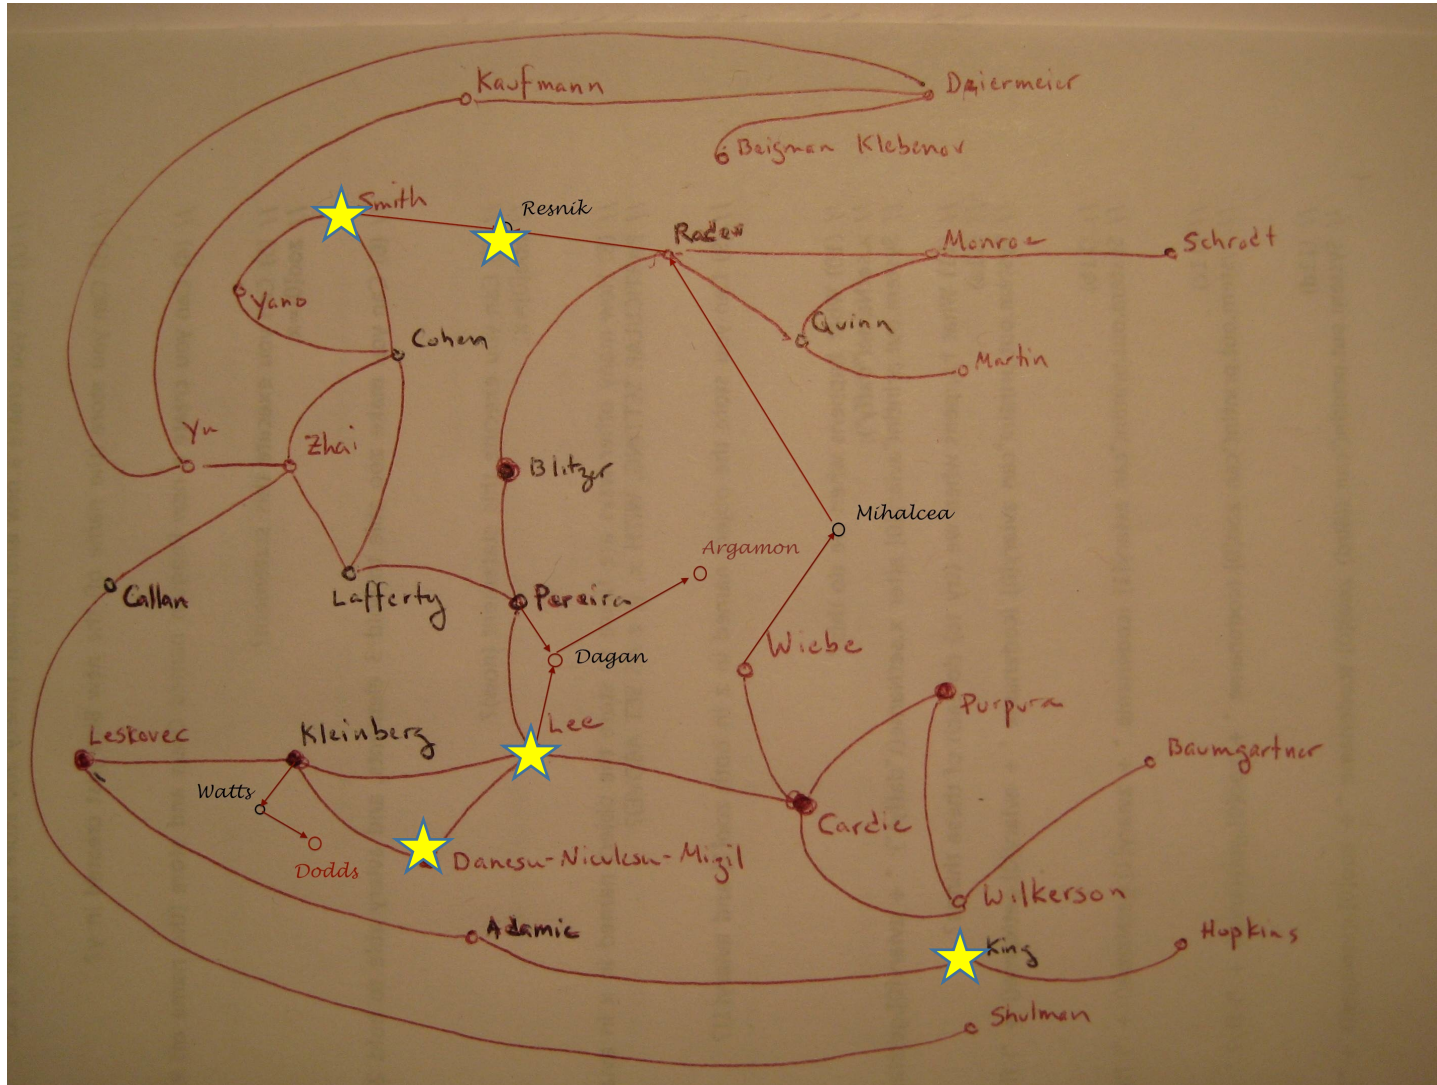 Kaufmann
Daiermeier
Beigman Klebenov
Smith
Resnik
Radev
Monroe
Schrodt
Yano
Cohen
Quinn
Martin
Yu
Zhai
Blitzer
Mihalcea
Argamon
Callan
Lafferty
Pereira
Dagan
Wiebe
Purpura
Lee
Leskovec
Kleinberg
Baumgartner
Watts
Cardie
Dodds
Danesu-Niculesu-Mizil
Wilkerson
Adamic
King
Hopkins
Shulman